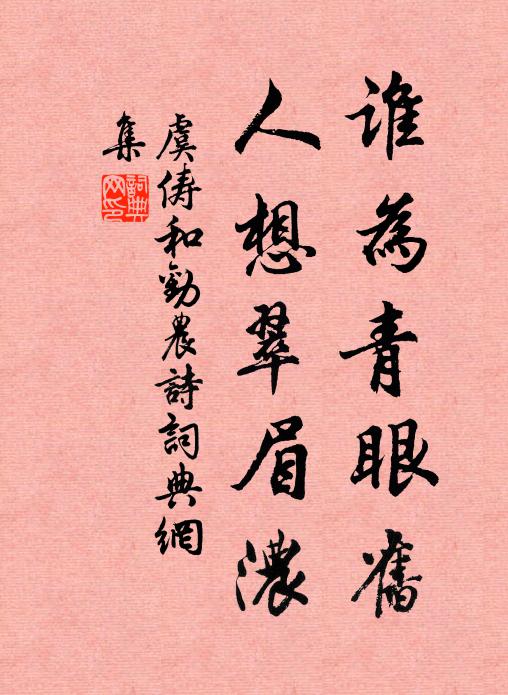 誰為青眼舊
人想翠眉濃
虞俦和勸農詩詞典網
集
詞典
网印